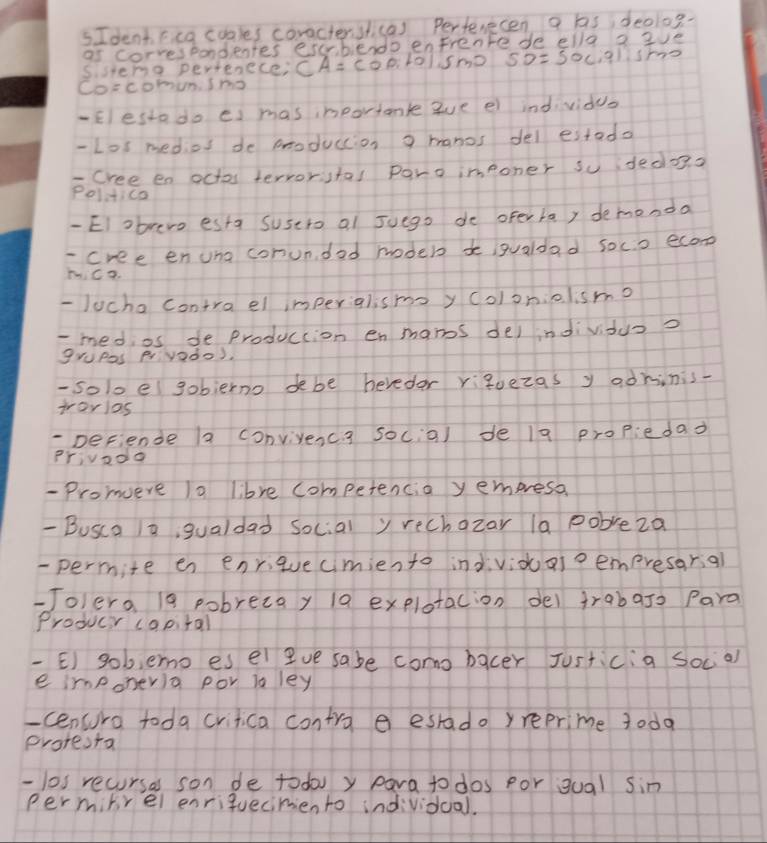 5. Identifica cuales caracteristicas Pertenecen a las ideolog-
as correspondientes escribiendo enfrente de ella a que
Sistema pertenece; CA = Capitalismo SO = Socialismo
CO = comunismo
- El estado es mas importante que el individuo
- Los medios de produccion a manos del estado
- Cree en actos terroristas Para imponer su ideologia
Politica
- El obrero esta Sujeto al Juego de oferta y demanda
- cree en una comunidad modelo de igualdad socio econo
mica.
- lucha contra el imperialismo y colonialismo
- medios de Produccion en manos del individuo o
grupos Privados.
- solo el gobierno debe heredar riquezas y adminis-
trarlas
- Defiende la convivencia social de la propiedad
Privada
- Promueve la libre competencia y empresa
- Busca la igualdad Social y rechazar la pobreza
- permite en enriquecimiento individual o empresarial
- Tolera la pobreza y la explotacion del trabajo Para
Producir capital
- El gobierno es el que sabe como hacer Justicia Social
e imponerla por la ley
- censura toda critica contra e estado y reprime toda
protesta
- los recursos son de todos y para todos por igual sin
Permitir el enriquecimiento individual.